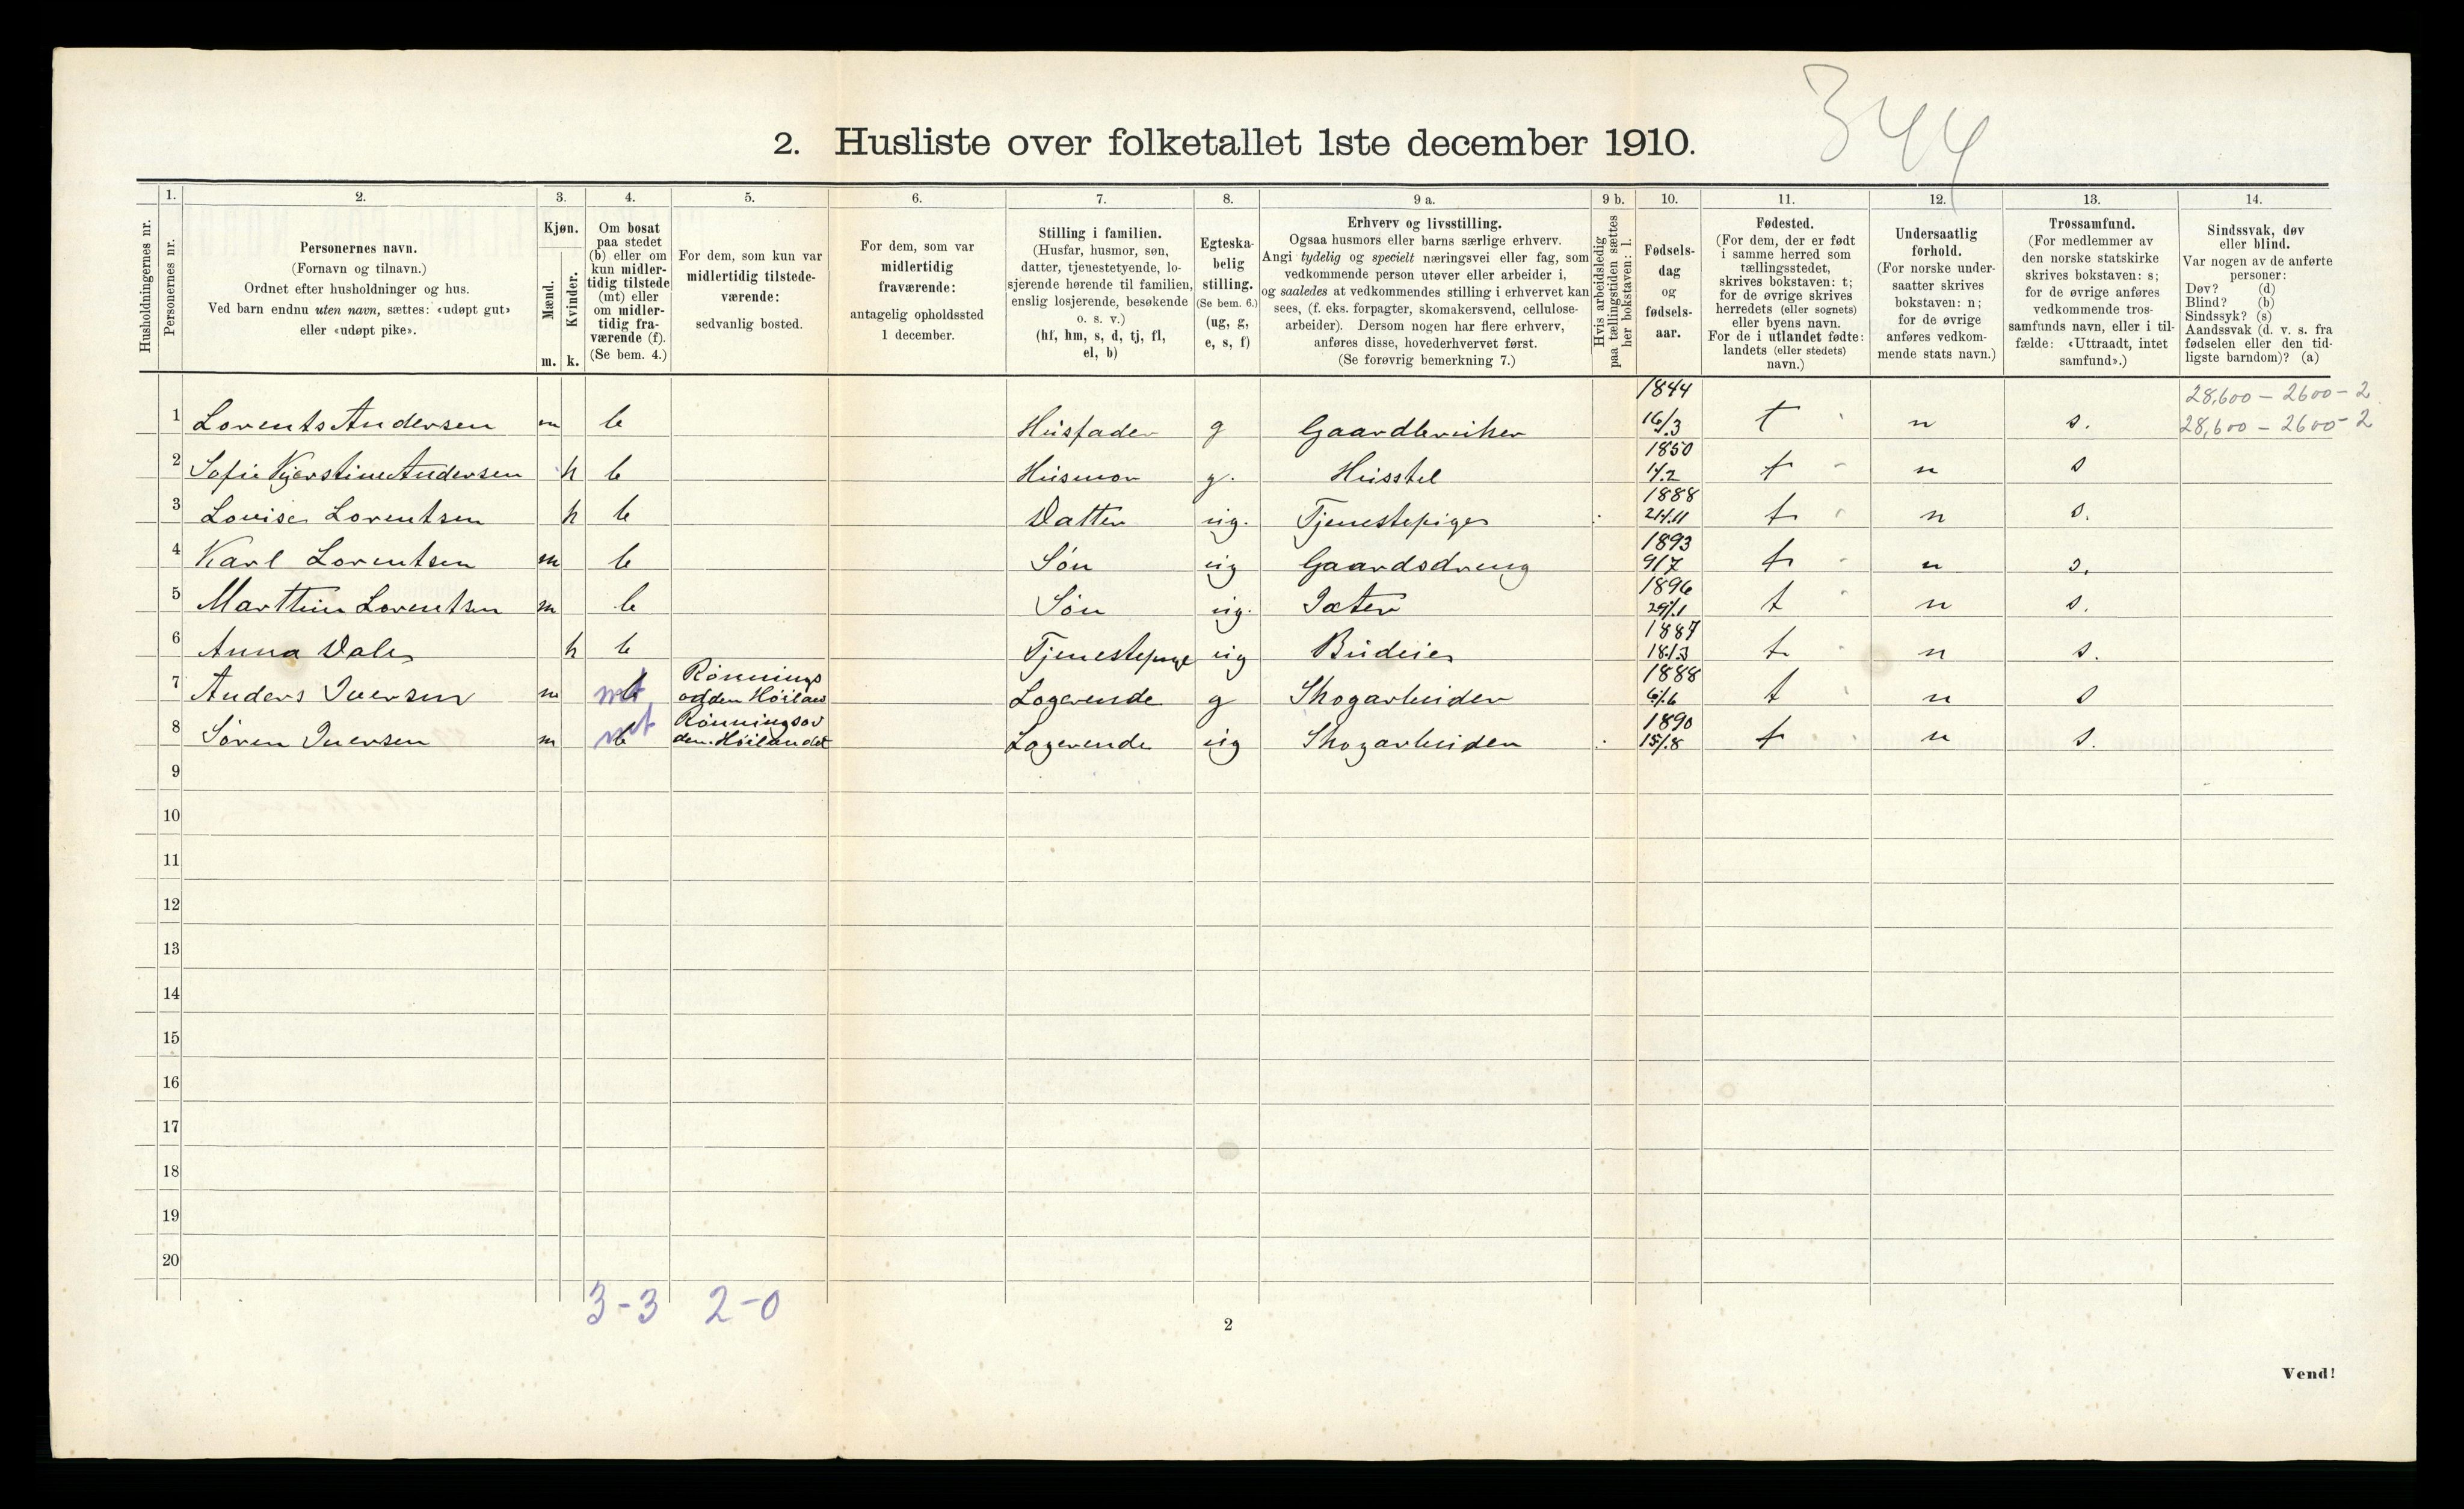 344
2. Husliste over folketallet 1ste december 1910.
Husholdningernes nr.
1.
Personernes nr.
2.
Personernes navn.
(Fornavn og tilnavn.)
Ordnet efter husholdninger og hus.
Ved barn endnu uten navn, sættes: «udøpt gut»
eller «udøpt pike».
3.
Kjøn.
Mænd.
Kvinder.
m. k.
4.
Om bosat
paa stedet
(b) eller om
kun midler-
tidig tilstede
(mt) eller
om midler-
tidig fra-
værende (f).
(Se bem. 4.)
5.
For dem, som kun var
midlertidig tilstede-
værende:
sedvanlig bosted.
6.
For dem, som var
midlertidig
fraværende:
antagelig opholdssted
1 december.
7.
Stilling i familien.
(Husfar, husmor, søn,
datter, tjenestetyende, lo-
sjerende hørende til familien,
enslig losjerende, besøkende
o. s. v.)
(hf, hm, s, d, tj, fl,
el, b)
8.
Egteska-
belig
stilling.
(Se bem. 6.)
(ug, g,
e, s, f)
9 a.
Erhverv og livsstilling.
Ogsaa husmors eller barns særlige erhverv.
Angi tydelig og specielt næringsvei eller fag, som
vedkommende person utøver eller arbeider i,
og saaledes at vedkommendes stilling i erhvervet kan
sees, (f. eks. forpagter, skomakersvend, cellulose-
arbeider). Dersom nogen har flere erhverv,
anføres disse, hovederhvervet først.
(Se forøvrig bemerkning 7.)
9 b.
Hvis arbeidsledig
paa tællingstiden sættes
her bokstaven: l.
10.
Fødsels-
dag
og
fødsels-
aar.
11.
Fødested.
(For dem, der er født
i samme herred som
tællingsstedet,
skrives bokstaven: t;
for de øvrige skrives
herredets (eller sognets)
eller byens navn.
For de i utlandet fødte:
landets (eller stedets)
navn.)
12.
Undersaatlig
forhold.
(For norske under-
saatter skrives
bokstaven: n;
for de øvrige
anføres vedkom-
mende stats navn.)
13.
Trossamfund.
(For medlemmer av
den norske statskirke
skrives bokstaven: s;
for de øvrige anføres
vedkommende tros-
samfunds navn, eller i til-
fælde: «Uttraadt, intet
samfund».)
14.
Sindssvak, døv
eller blind.
Var nogen av de anførte
personer:
Døv? (d)
Blind? (b)
Sindssyk? (s)
Aandssvak (d. v. s. fra
fødselen eller den tid-
ligste barndom)? (a)
1844 28,600 - 2600 - 2
1 Lorents Andersen m b Husfader g Gaardbruker 16/3 t n s. 28,600 - 2600 - 2
1850
2 Sofie Kjerstine Andersen k b Husmor g. Husstel t n s
1888
3 Louise Lorentsen k b Datter ug. Tjenestepige 21/11 t n s.
1893
4 Karl Lorentsen m b Søn ug Gaardsdreng 9/7 t n s.
1896
5 Marttin Lorentsen m b Søn ug. 29/1 t n s.
1887
6 Anna Dale k b Tjenestepige ug Budeie 18/3 t n s.
Rönnings 1888
7 Anders Iversen m b mt odden Höilan Logerende g Skogarbeider 6/6 t n s
Rönningsod 1890
8 Sören Iversen m b mt den Höilandet Logerende ug Skogarbeider 15/8 t n s.
9
10
11
12
13
14
15
16
17
18
19
20
3-3 2-0
2
Vend!